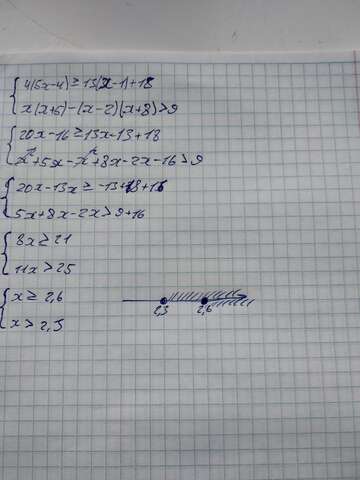 4(5x-4) ≥ 13(x-1)+18
x(x+5)-(x-2)(x+8)>9
20x-16 ≥ 13x-13+18
x²+5x-x²+8x-2x-16>9
20x-13x ≥ -13+18+16
5x+8x-2x>9+16
8x ≥ 21
11x > 25
x ≥ 2,6
x > 2,3
2,3 2,6